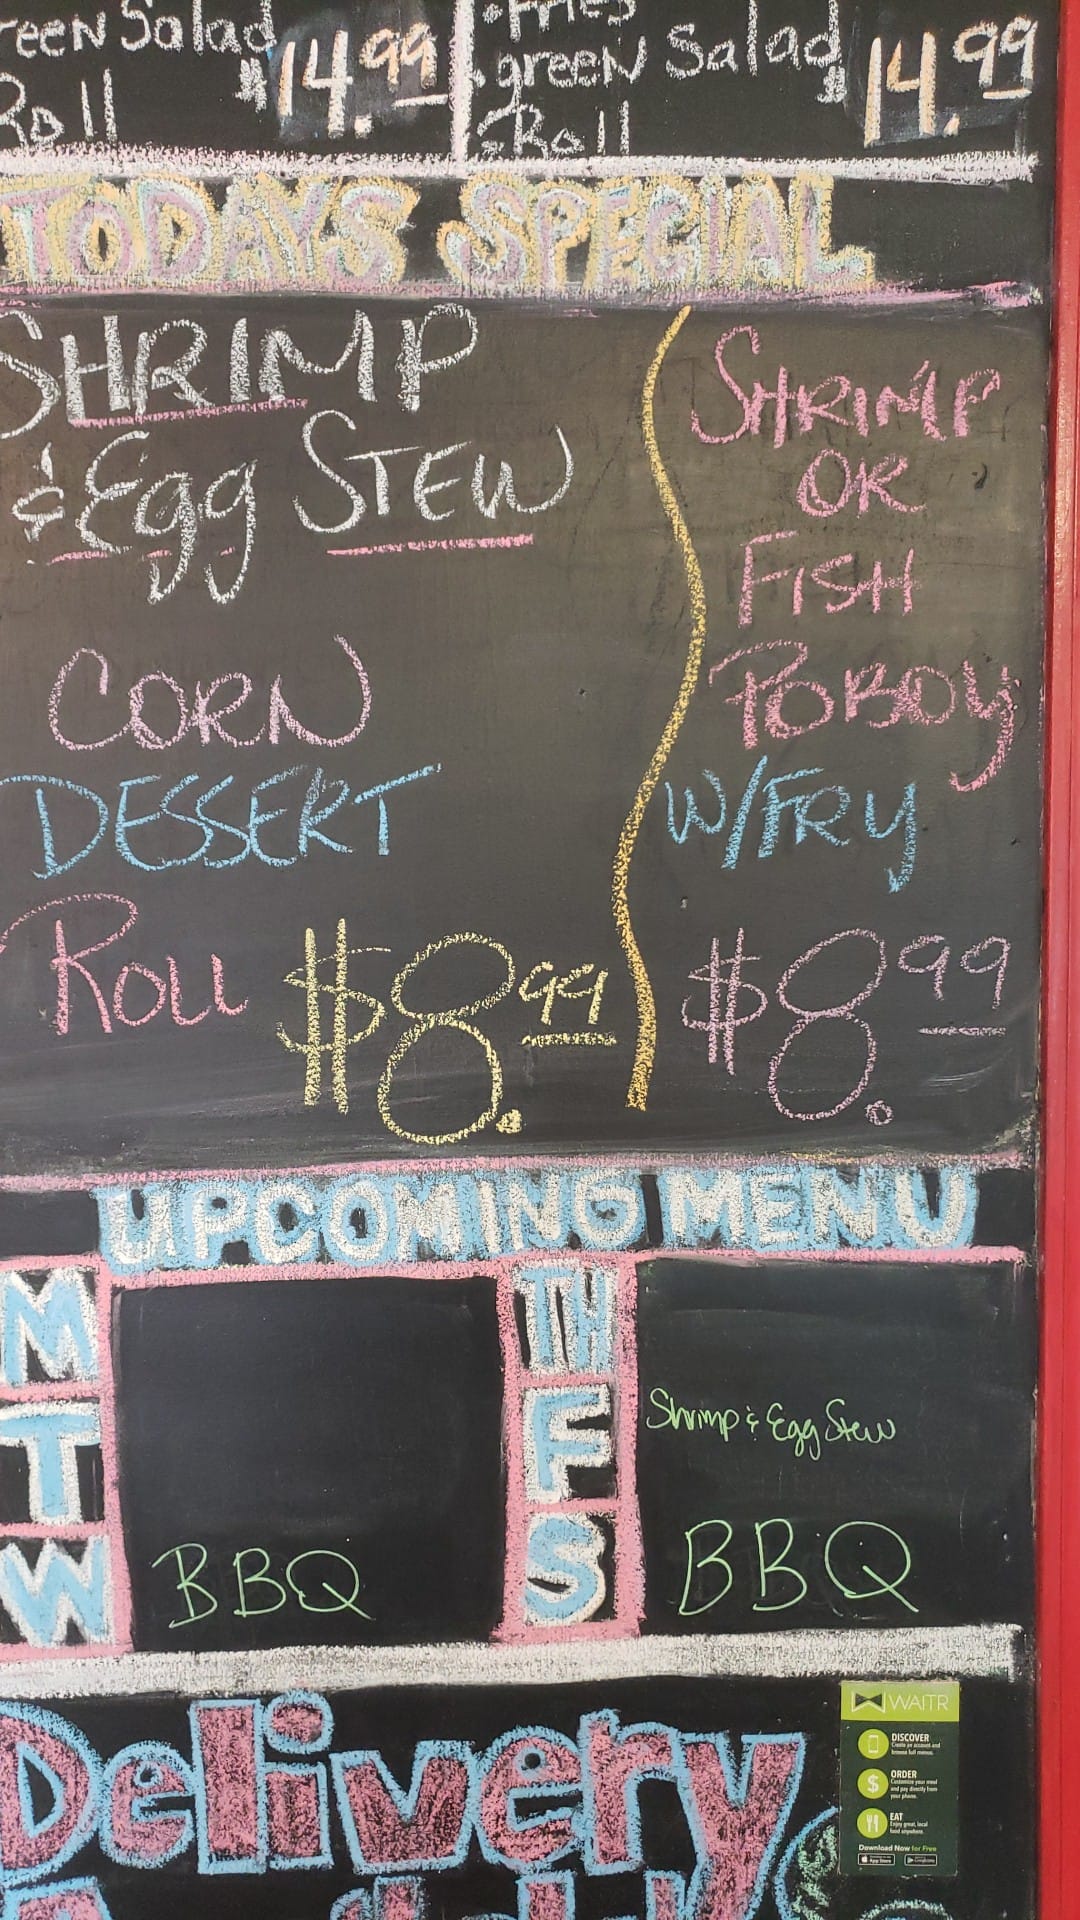 reen Salad
Roll
$14.99
Fries
green Salad
Roll
$14.99
TODAYS SPECIAL
SHRIMP
& Egg STEW
CORN
DESSERT
ROLL $8.99
SHRIMP
OR
FISH
POBOY
W/FRY
$8.99
UPCOMING MENU
M
T
W BBQ
TH
F Shrimp & Egg Stew
S BBQ
Delivery
WAITR
DISCOVER
Create an account and
browse full menus.
ORDER
Customize your meal
and pay directly from
your phone.
EAT
Enjoy great, local
food anywhere.
Download Now for Free
App Store